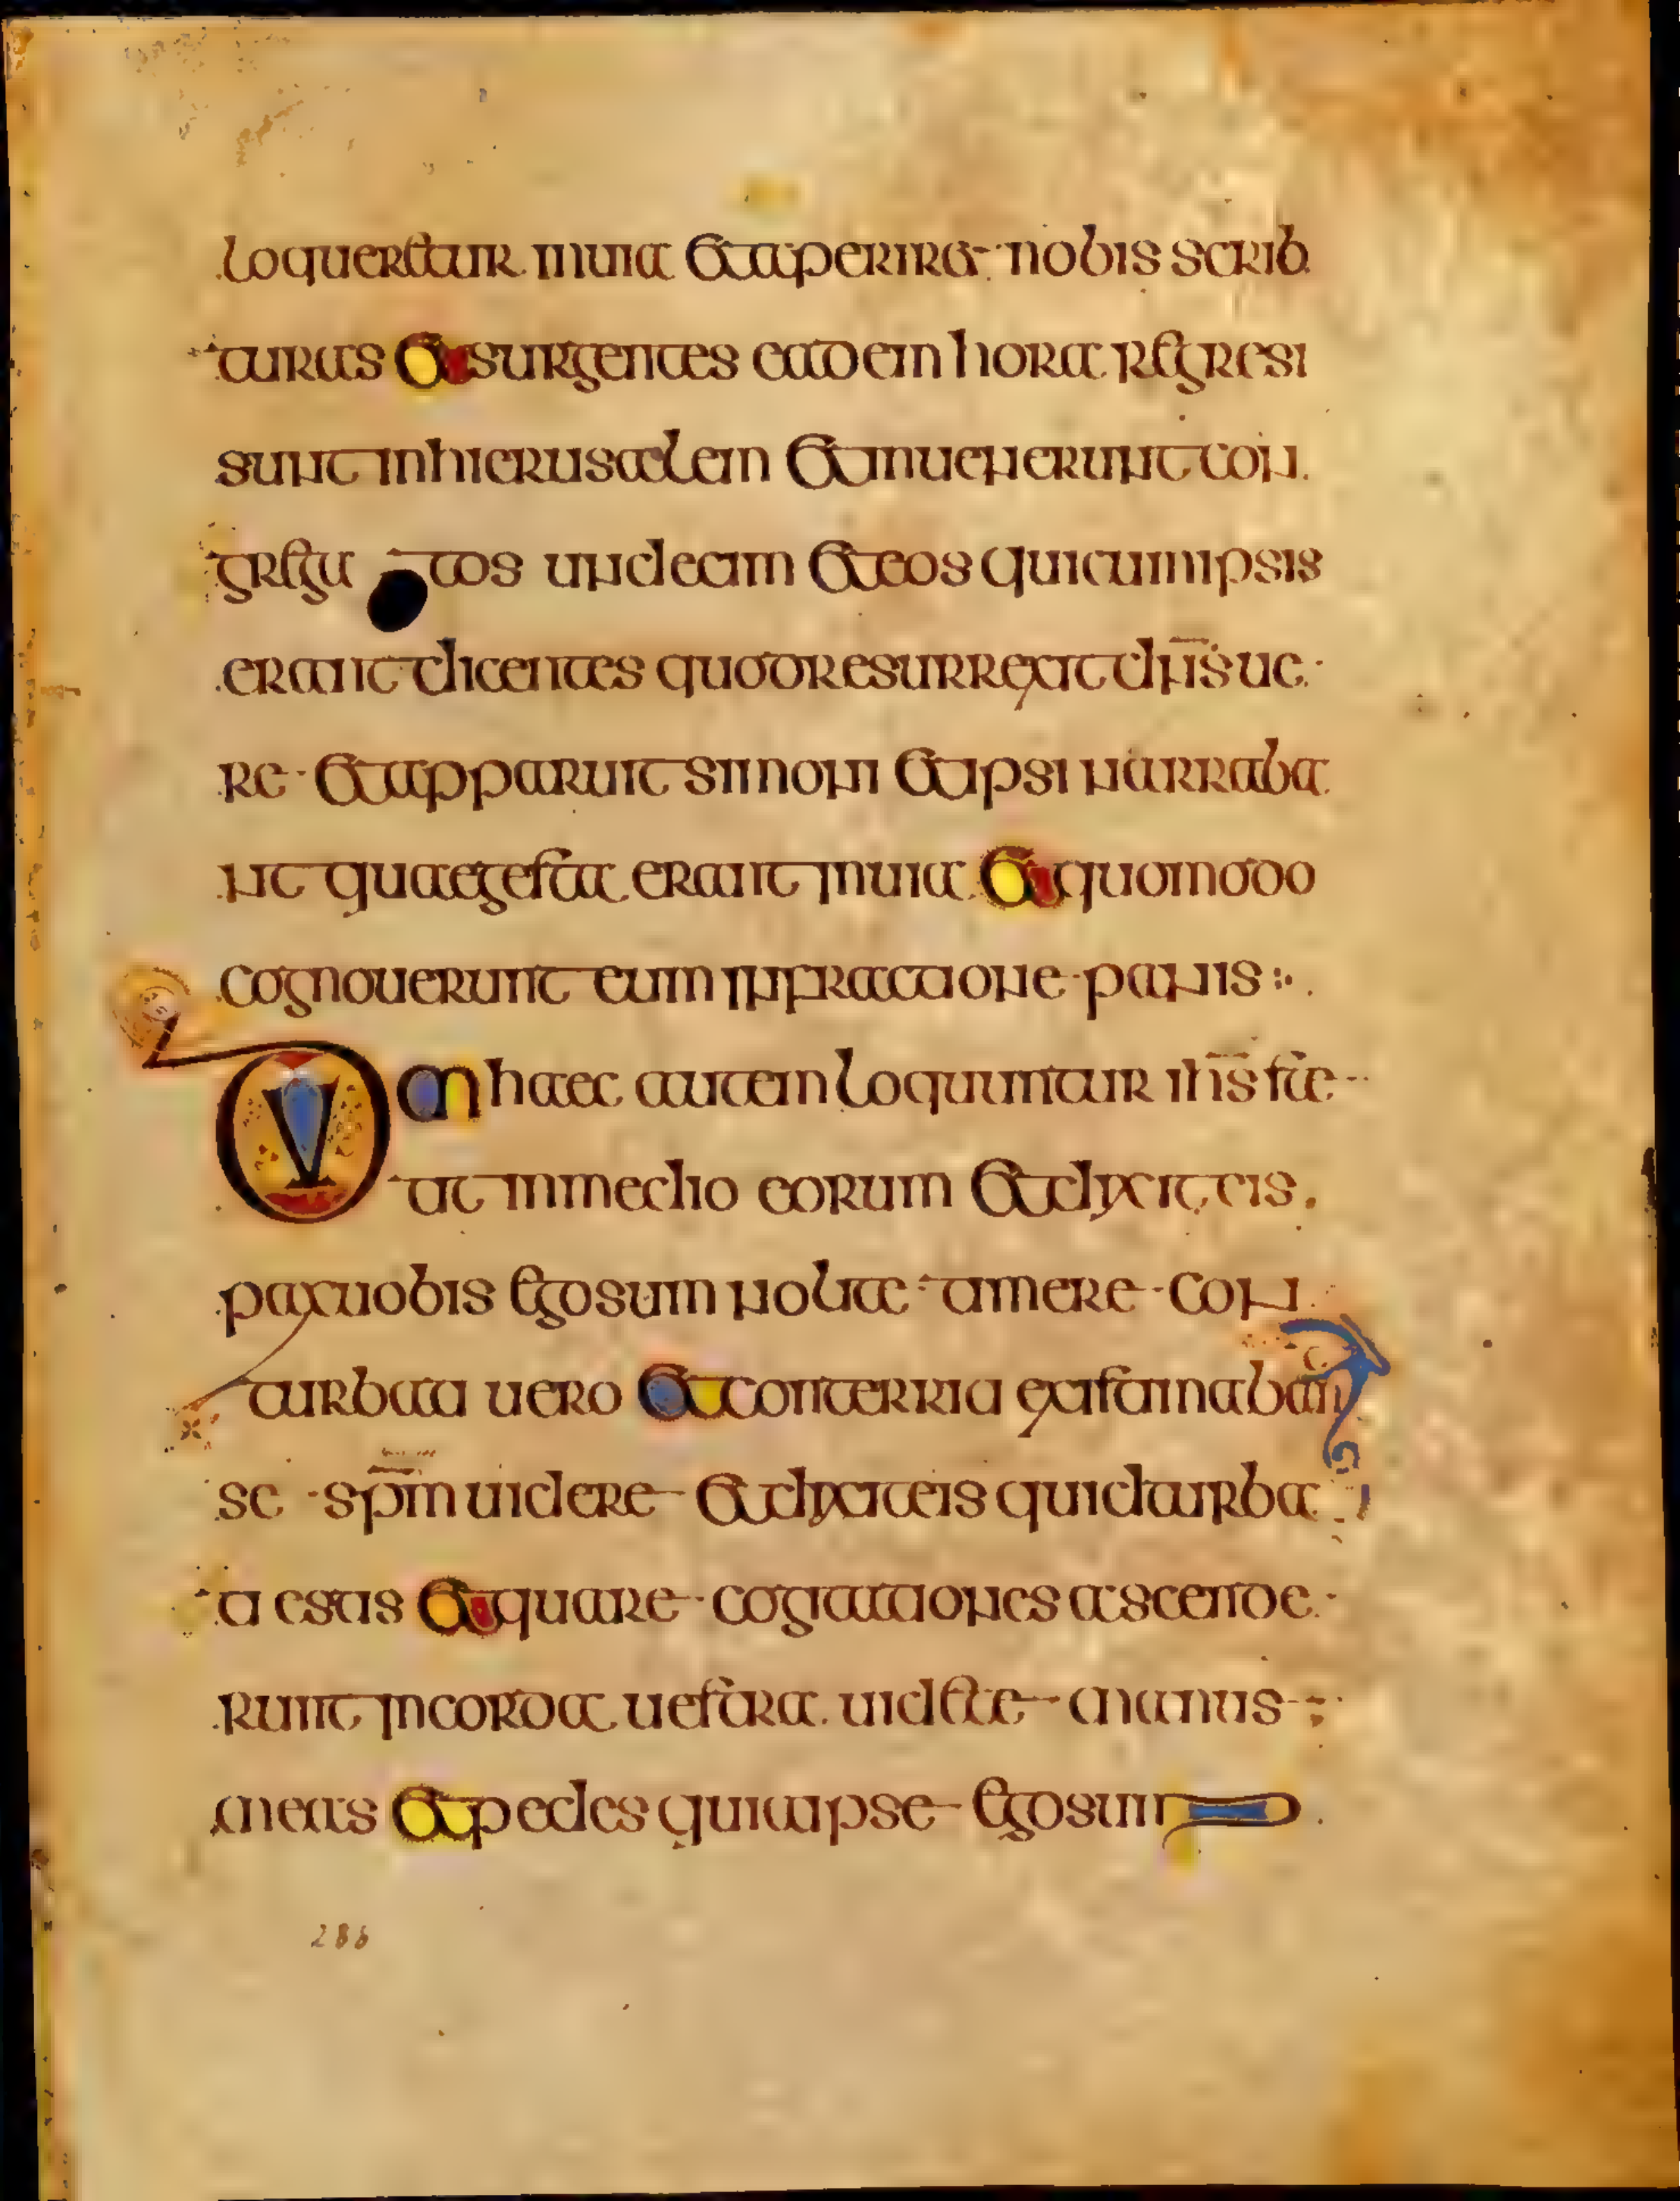 loqueretur inuia et aperiret nobis scrib
turas et surgentes eadem hora regresi
sunt in hierusalem et inuenerunt con
grega tos undecim et eos qui cum ipsis
erant dicentes quod resurrexit dn̄s ue
re et apparuit simoni et ipsi narraba
nt quae gesta erant in uia et quomodo
cognouerunt eum in fractione panis
Dum haec autem loquuntur ih̄s ste
tit in medio eorum et dixit eis
pax uobis ego sum nolite timere con
turbati uero et conterriti existimaban
se sp̄m uidere et dixit eis quid turba
ti estis et quare cogitationes ascende
runt in corda uestra uidete manus
meas et pedes quia ipse ego sum
286